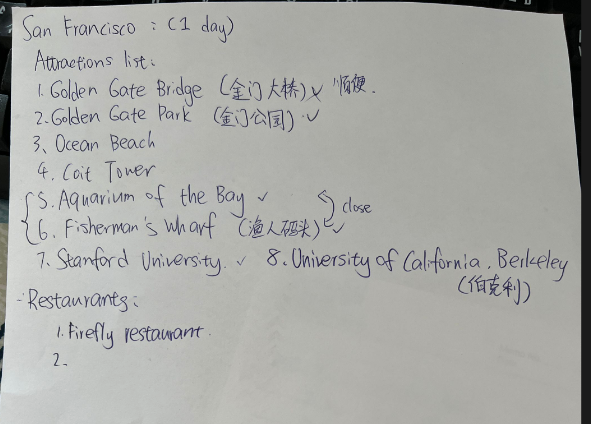 San Francisco : (1 day)
Attractions list:
1. Golden Gate Bridge (金门大桥) ✓ 顺便.
2. Golden Gate Park (金门公园) ✓
3. Ocean Beach
4. Coit Tower
5. Aquarium of the Bay ✓
close
6. Fisherman's wharf (渔人码头) ✓
7. Stanford University. ✓ 8. University of California, Berkeley
(伯克利)
- Restaurants:
1. Firefly restaurant.
2.